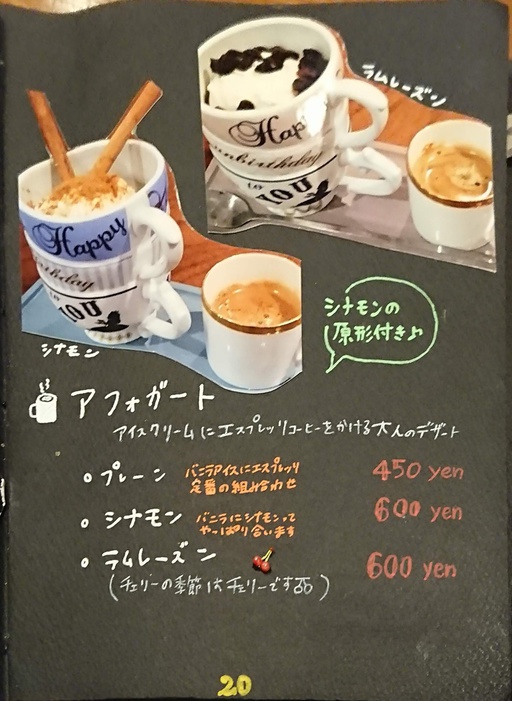 ラムレーズン
Hap
unbirthday
to
YOU
Happy
birthday
to
YOU
シナモン
シナモンの
原形付き♪
アフォガート
アイスクリームにエスプレッソコーヒーをかける大人のデザート
プレーン バニラアイスにエスプレッソ 450 yen
定番の組み合わせ
シナモン バニラにシナモンって 600 yen
やっぱり合います
ラムレーズン 600 yen
(チェリーの季節はチェリーです)
20